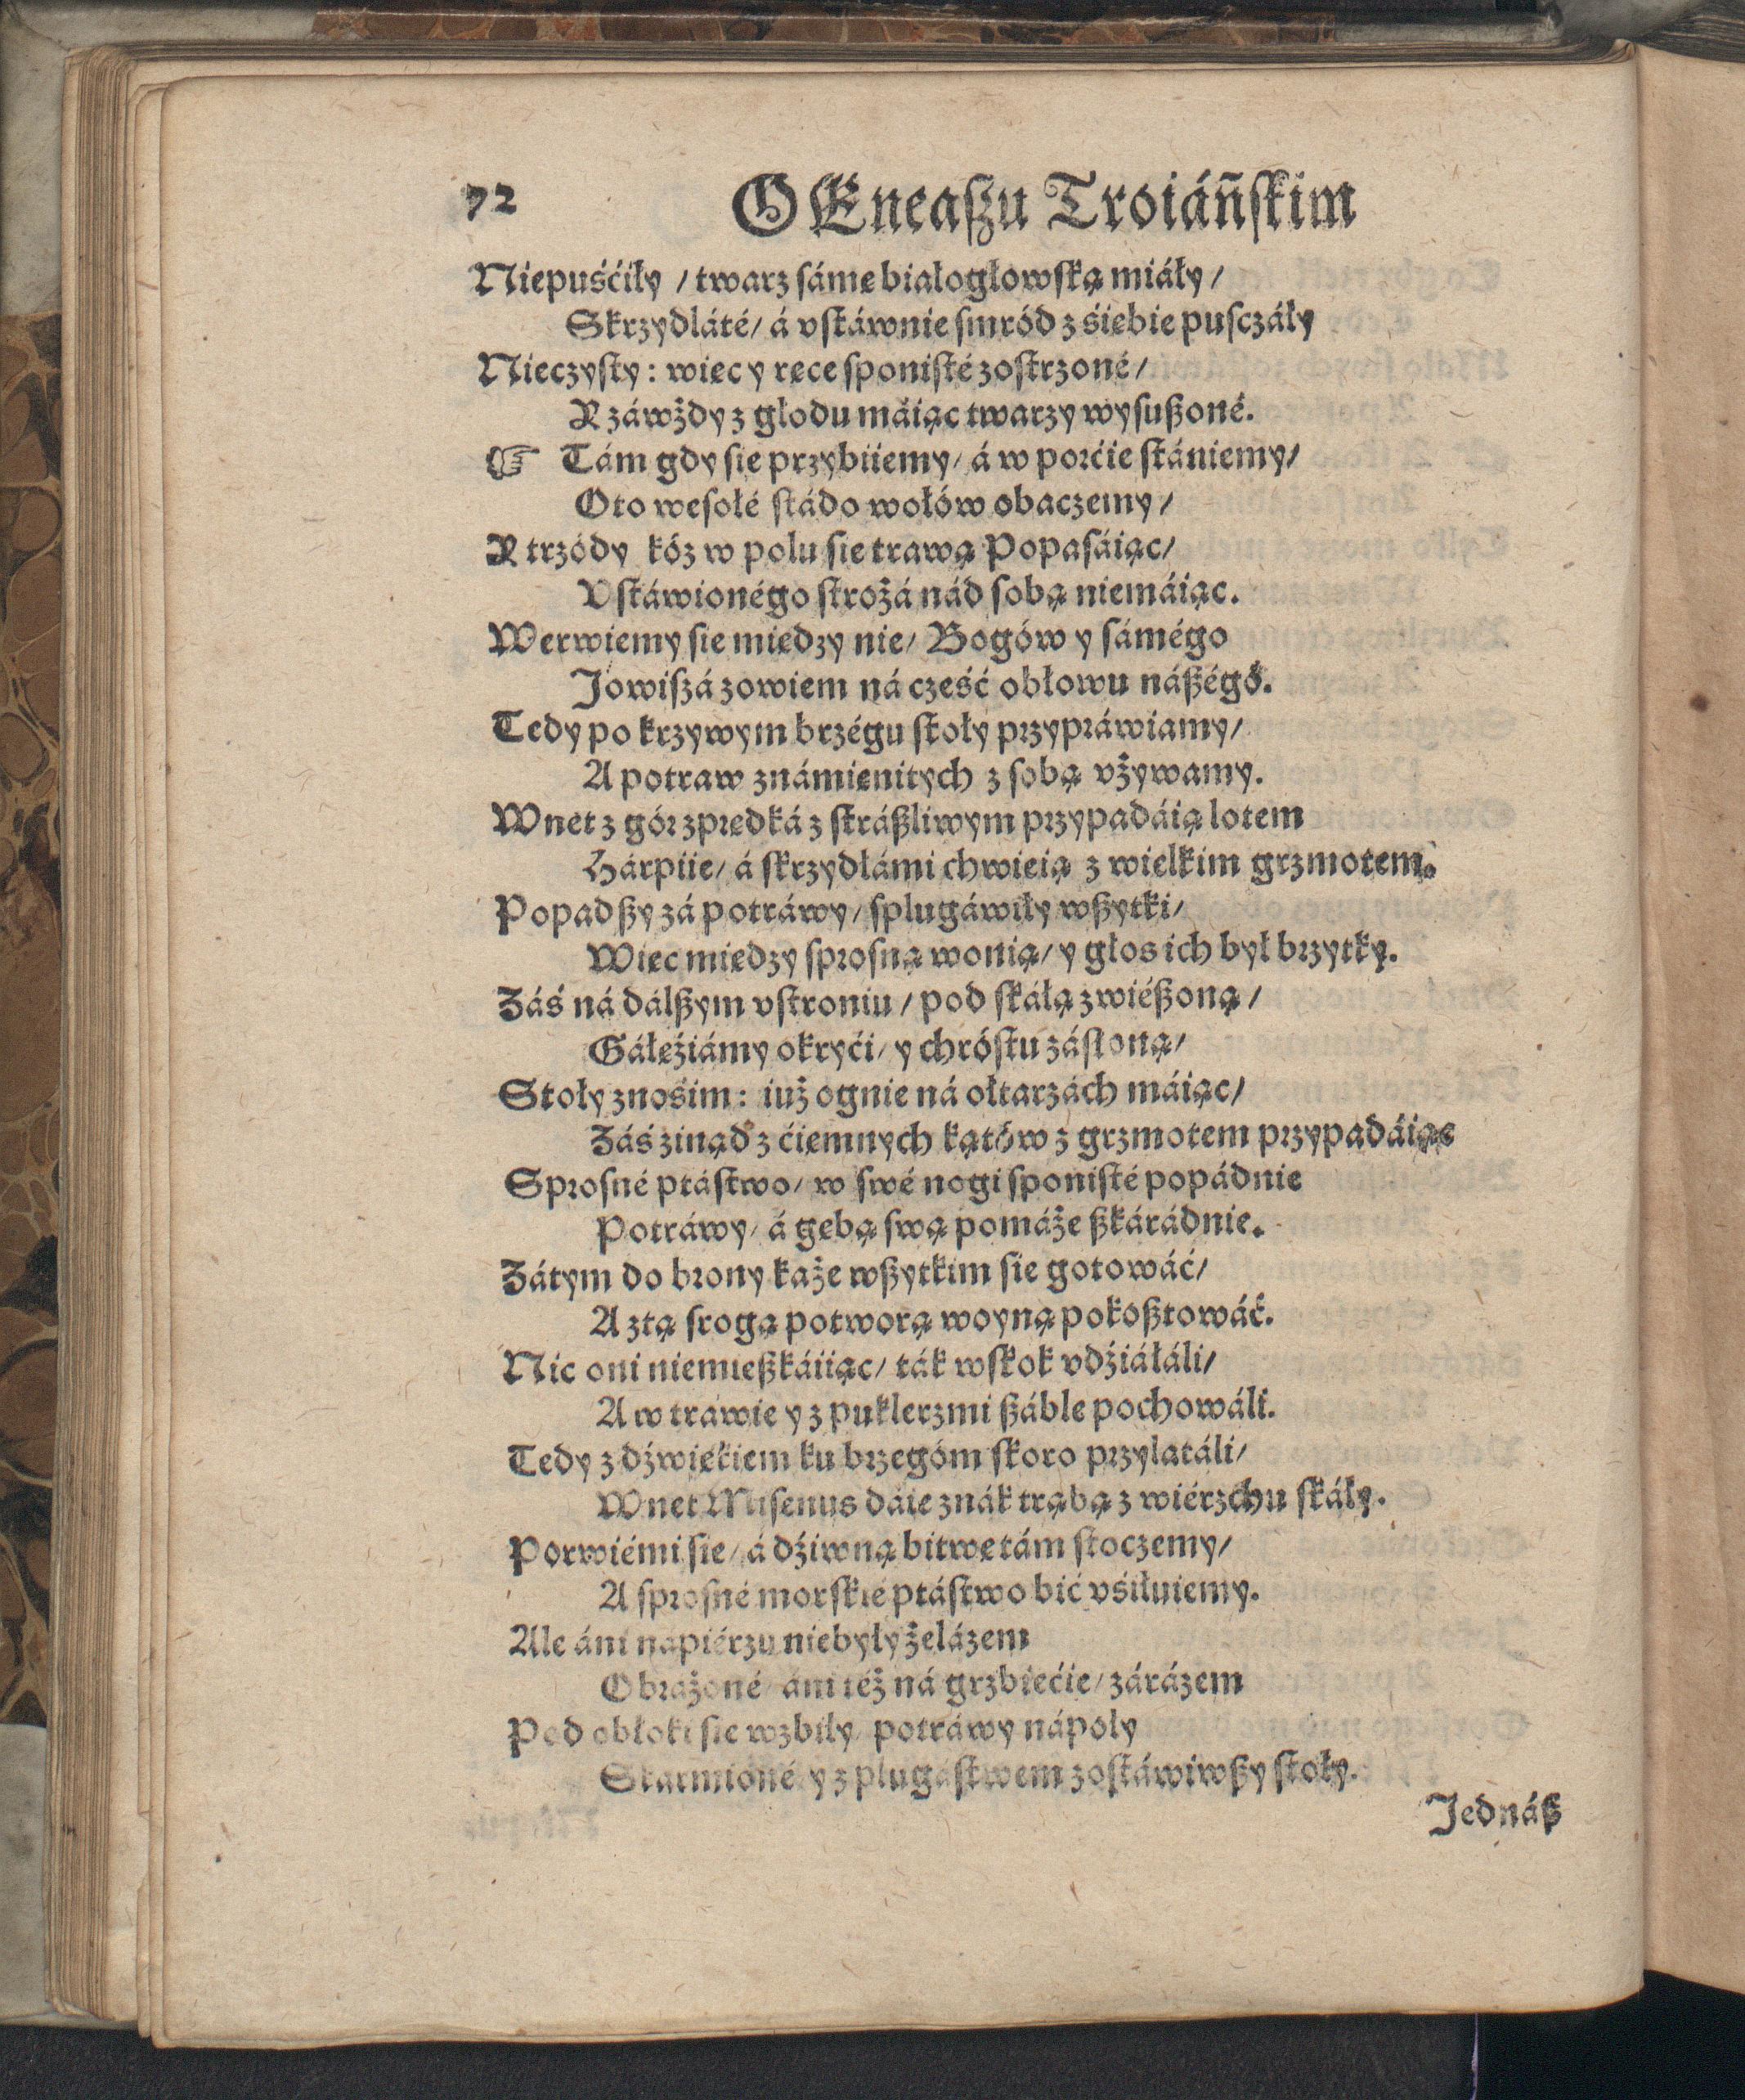 72 O Eneaſzu Troiáńſkim
Niepuśćiły / twarz ſáme białogłowſką miáły /
Skrzydláté / á vſtáwnie ſmród z śiebie puſczáły
Nieczyſty : więc y ręce ſponiſté zoſtrzoné /
R záwżdy z głodu máiąc twarzy wyſußoné.
☞ Tám gdy ſie przybiiemy / á w porćie ſtániemy /
Oto weſołé ſtádo wołów obaczemy /
R trzódy kóz w polu ſie trawą Popaſáiąc /
Vſtáwionégo ſtrożá nád ſobą niemáiąc.
Werwiemy ſie miedzy nie / Bogów y ſámégo
Jowiſzá zowiem ná cześć obłowu náßégo.
Tedy po krzywym brzégu ſtoły przypráwiamy /
A potraw známienitych z ſobą vżywamy.
Wnet z gór zprędká z ſtráßliwym przypadáią lotem
Hárpiie / á ſkrzydłámi chwieią z wielkim grzmotem.
Popadßy zá potráwy / ſplugáwiły wßytki /
Więc miedzy ſproſną wonią / y głos ich był brzytky.
Záś ná dálßym vſtroniu / pod ſkáłą zwiéßoną /
Gáłęźiámy okryći / y chróſtu záſłoną /
Stoły znośim : iuż ognie ná ołtarzách máiąc /
Záś zinąd z ćiemnych kątów z grzmotem przypadáiąc
Sproſné ptáſtwo / w ſwé nogi ſponiſté popádnie
Potráwy / á gębą ſwą pomáże ßkárádnie.
Zátym do brony każe wßytkim ſie gotowáć /
A ztą ſrogą potworą woyną pokoßtowáć.
Nic oni niemießkáiiąc / ták wſkok vdźiáłáli /
A w trawie y z puklerzmi ßáble pochowáli.
Tedy z dźwiękiem ku brzegóm ſkoro przylatáli /
Wnet Miſenus dáie znák trąbą z wiérzchu ſkáły.
Porwiémi ſie / á dźiwną bitwę tám ſtoczemy /
A ſproſné morſkié ptáſtwo bić vśiłuiemy.
Ale áni napiérzu niebyły żelázem
Obrażoné / áni téż ná grzbiećie / zárázem
Pod obłoki ſie wzbiły / potráwy nápoły
Skarmioné / y z plugáſtwem zoſtáwiwßy ſtoły.
Jednáß